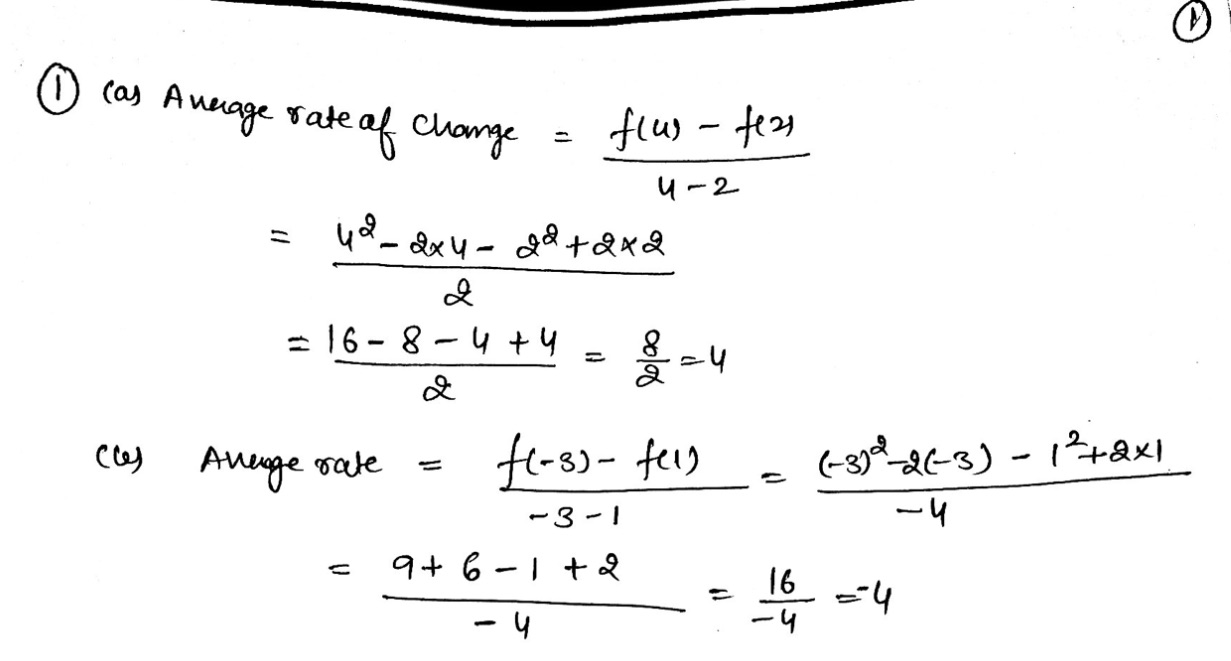 ①
① (a) Average rate of Change = f(4) - f(2) / 4-2
= 4² - 2×4 - 2² + 2×2 / 2
= 16 - 8 - 4 + 4 / 2 = 8/2 = 4
(b) Average rate = f(-3) - f(1) / -3-1 = (-3)² - 2(-3) - 1² + 2×1 / -4
= 9 + 6 - 1 + 2 / -4 = 16/-4 = -4